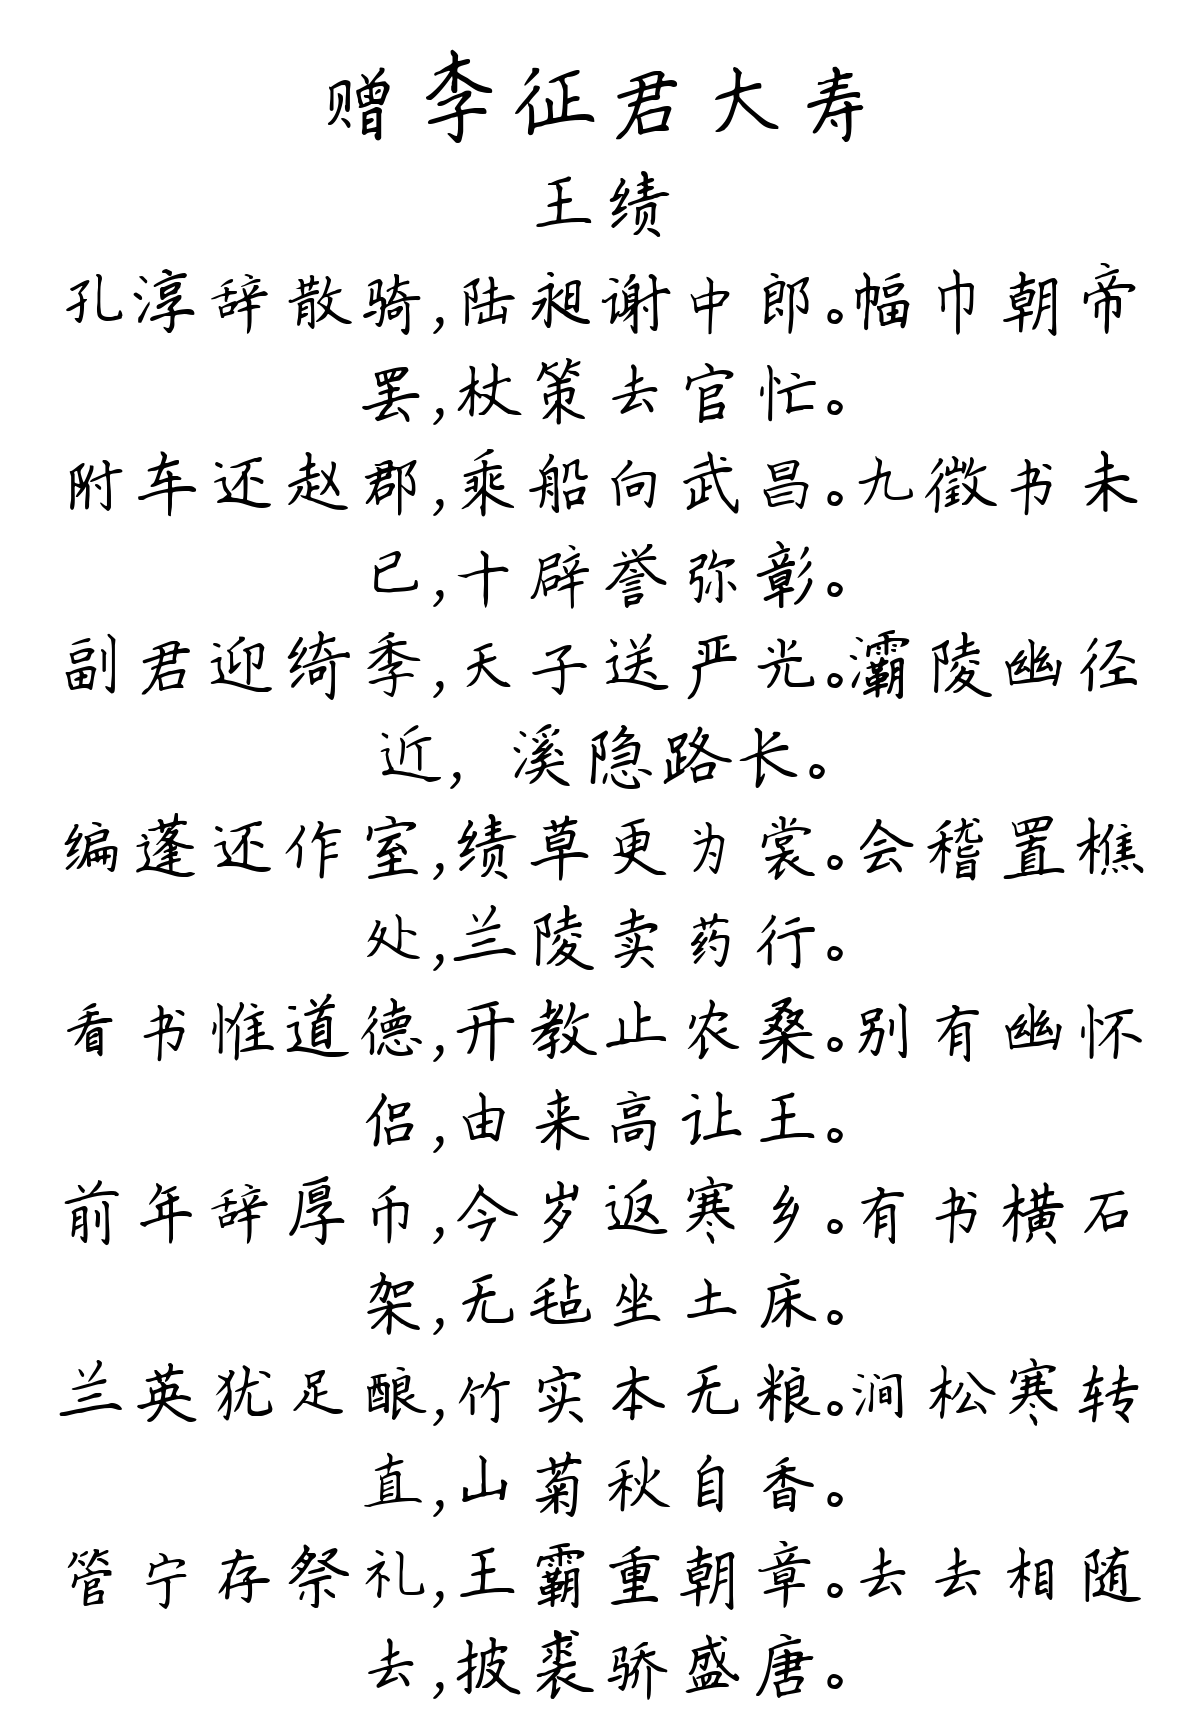 赠李征君大寿
王绩
孔淳辞散骑,陆昶谢中郎。幅巾朝帝
罢,杖策去官忙。
附车还赵郡,乘船向武昌。九徵书未
已,十辟誉弥彰。
副君迎绮季,天子送严光。灞陵幽径
近,溪隐路长。
编蓬还作室,绩草更为裳。会稽置樵
处,兰陵卖药行。
看书惟道德,开教止农桑。别有幽怀
侣,由来高让王。
前年辞厚币,今岁返寒乡。有书横石
架,无毡坐土床。
兰英犹足酿,竹实本无粮。涧松寒转
直,山菊秋自香。
管宁存祭礼,王霸重朝章。去去相随
去,披裘骄盛唐。